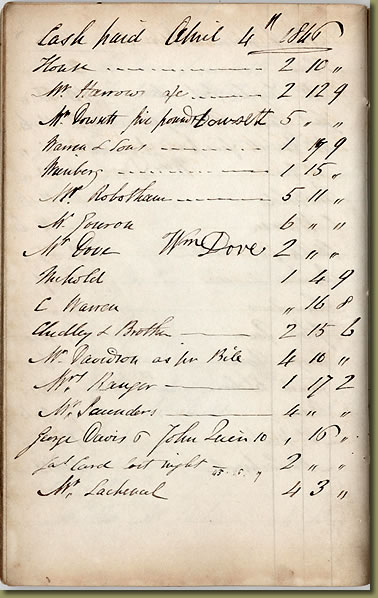 Cash paid April 4th 1846
House 2 10 "
Mr Harrow 2 12 9
Mr Dowsett five pound Dowseth 5 " "
Warren & Sons 1 19 9
1 15 "
Mr Robotham 5 11 "
Mr 6 " "
Mr Dove Wm Dove 2 " "
1 4 9
C Warren " 16 8
Chidley & Brother 2 15 6
Mr Davidson as pr Bill 4 10 "
Mrs Ranger 1 17 2
Mr Saunders 4 " "
George Davis 6 John 10 " 16 "
last night 45 . 5 . 9 2 " "
Mr Lachenal 4 3 "